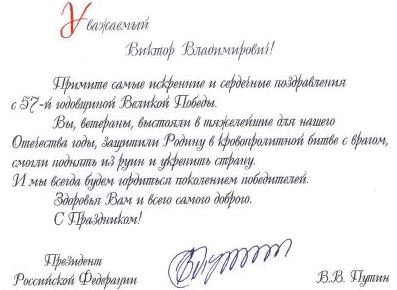 Уважаемый
Виктор Владимирович!
Примите самые искренние и сердечные поздравления
с 57-й годовщиной Великой Победы.
Вы, ветераны, выстояли в тяжелейшие для нашего
Отечества годы, защитили Родину в кровопролитной битве с врагом,
смогли поднять из руин и укрепить страну.
И мы всегда будем гордиться поколением победителей.
Здоровья Вам и всего самого доброго.
С Праздником!
Президент
Российской Федерации В.В. Путин